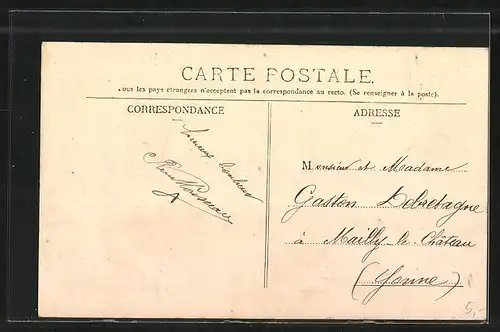 CARTE POSTALE.
ous les pays étrangers n'acceptent pas la correspondance au recto. (Se renseigner à la poste).
CORRESPONDANCE
ADRESSE
Monsieur et Madame
Gaston Debretagne
à Mailly-le-Château
(Yonne)
5,-